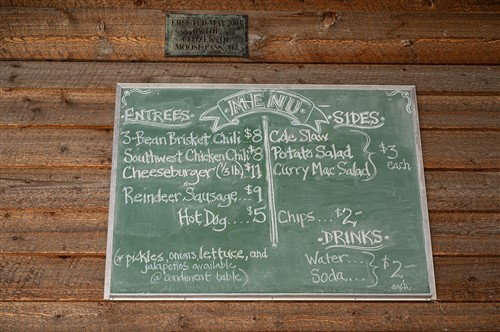 ERECTED MAY 2004
BY THE
CITIZENS OF
MOOSE PASS, AK
MENU
ENTREES
3-Bean Brisket Chili $8
Southwest Chicken Chili $8
Cheeseburger (⅓ lb) $11
Reindeer Sausage... $9
Hot Dog.... $5
(* pickles, onions, lettuce, and
jalapeños available
@ condiment table)
SIDES
Cole Slaw
Potato Salad
Curry Mac Salad
$3
each
Chips... $2-
DRINKS
Water....
Soda....
$2-
each